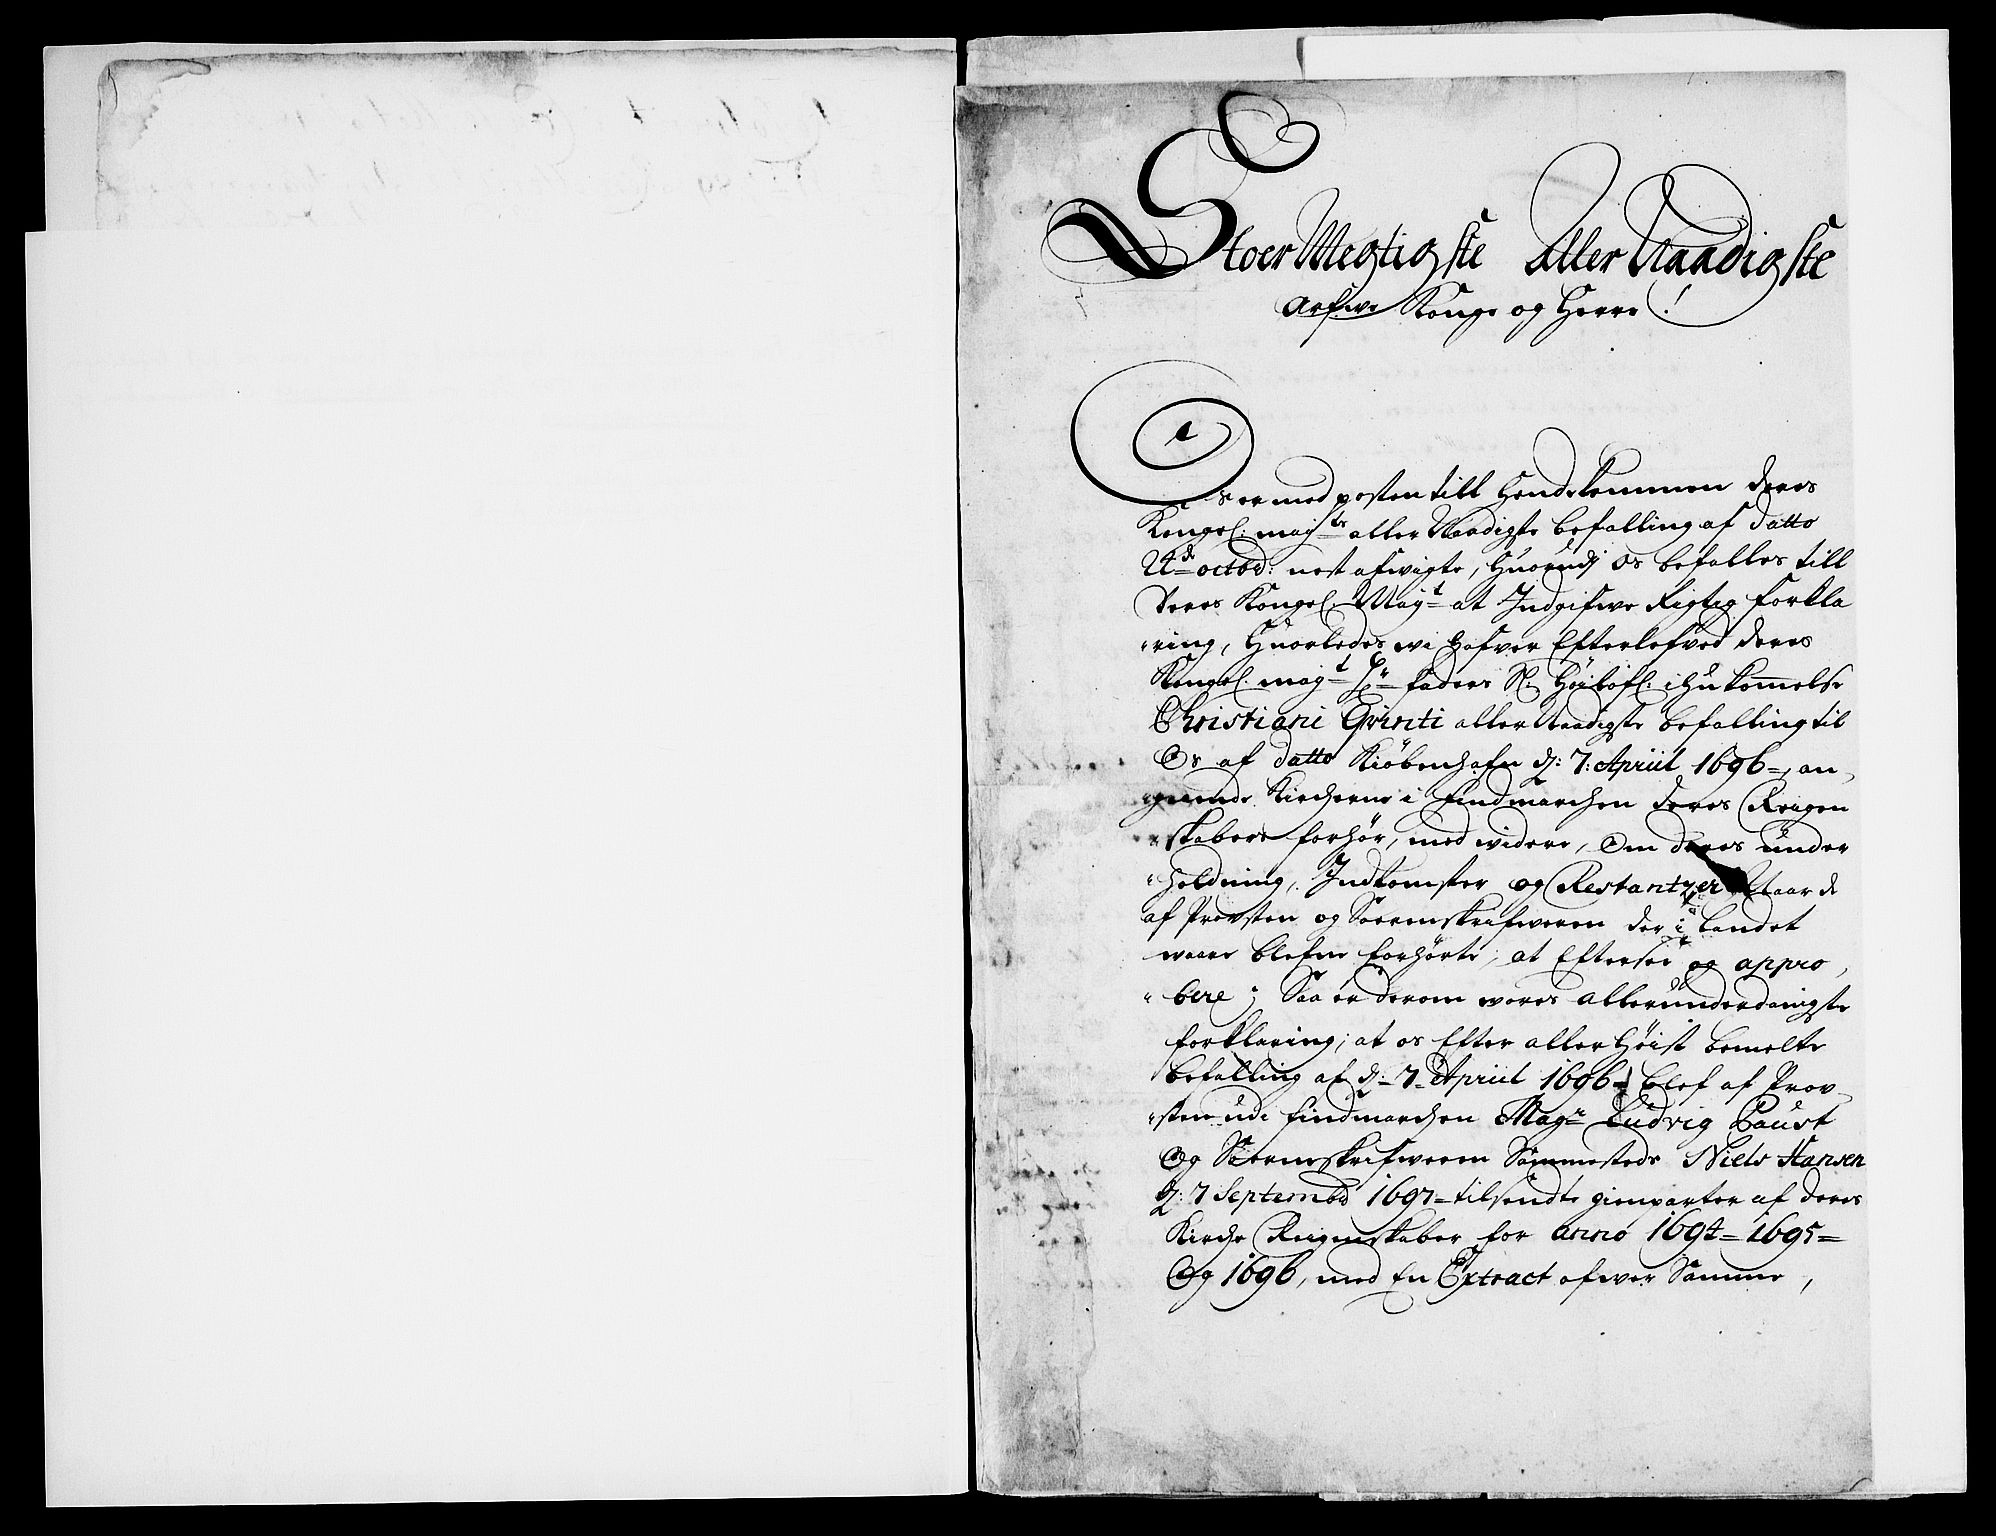 Stoer Megtigste Aller Naadigste
Arfwe Konge og Herre!
Os er med posten till Hende kommen Deres
Kongel: may:ts aller Naadigste befalling af Datto
24de octob: nest afwigte, Huorudj os befalles till
Deres Kongel. May:t at Indgifwe Rigtig forkla
ring, Huorledes wi hafver Efterlefved Deres
Kongel. may:t H:r faders S: Höilofl: ihukommelse
Christiani Qvinti aller Naadigste befalling til
Os af Datto Kiöbenhafn d: 7: Apriil 1696, an
gaaende Kircherne i Findmarchen deres Reigen
skabers forhör, med widere, Om deres under
holdning, Indkomster og Restantzer Naar de
af Provsten og Sorenskrifweren der i Landet
waare blefne forhörte, at Eftersee og appro
bere; Saa er derom wores allerunderdanigste
forklaring, at os Efter aller Höist bemelte
befalling af d: 7 Apriil 1696 blef af Prov
sten udi Findmarchen Mag:r Ludvig Paust
Og Sorenskrifweren Sammesteds Niels Hansen
d: 7 Septembr 1697 tilsendte gienparter af deres
Kirche Reigenskaber for anno 1694 = 1695 =
Og 1696, med En Extract ofwer Samme,